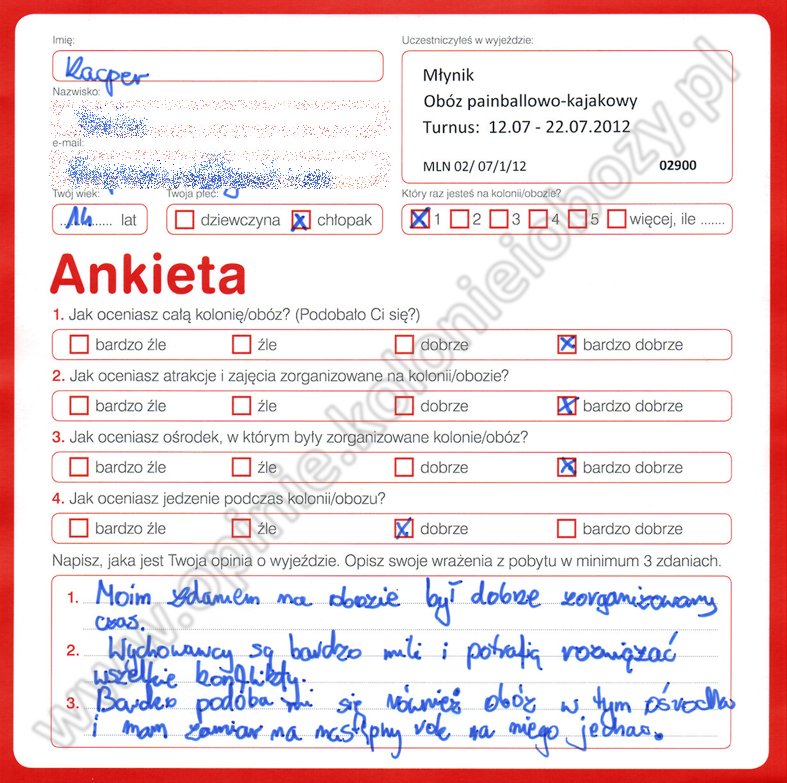 Imię:
Uczestniczyłeś w wyjeździe:
Kacper
Młynik
Nazwisko:
Obóz painballowo-kajakowy
Turnus: 12.07 - 22.07.2012
e-mail:
MLN 02/ 07/1/12 02900
Twój wiek: Twoja płeć: Który raz jesteś na kolonii/obozie?
14 lat dziewczyna x chłopak x 1 2 3 4 5 więcej, ile .......
Ankieta
1. Jak oceniasz całą kolonię/obóz? (Podobało Ci się?)
bardzo źle źle dobrze x bardzo dobrze
2. Jak oceniasz atrakcje i zajęcia zorganizowane na kolonii/obozie?
bardzo źle źle dobrze x bardzo dobrze
3. Jak oceniasz ośrodek, w którym były zorganizowane kolonie/obóz?
bardzo źle źle dobrze x bardzo dobrze
4. Jak oceniasz jedzenie podczas kolonii/obozu?
bardzo źle źle x dobrze bardzo dobrze
Napisz, jaka jest Twoja opinia o wyjeździe. Opisz swoje wrażenia z pobytu w minimum 3 zdaniach.
1. Moim zdaniem na obozie był dobrze zorganizowany
czas.
2. Wychowawcy są bardzo mili i potrafią rozwiązać
wszelkie konflikty.
3. Bardzo podoba mi się również obóz w tym ośrodku
i mam zamiar na następny rok na niego jechać.
www.opinie.kolonieiobozy.pl